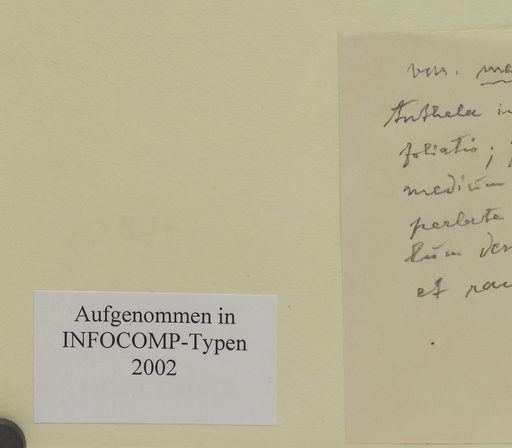 Aufgenommen in
INFOCOMP-Typen
2002
var.
Anthela in
foliatis;
medium
perlate
et